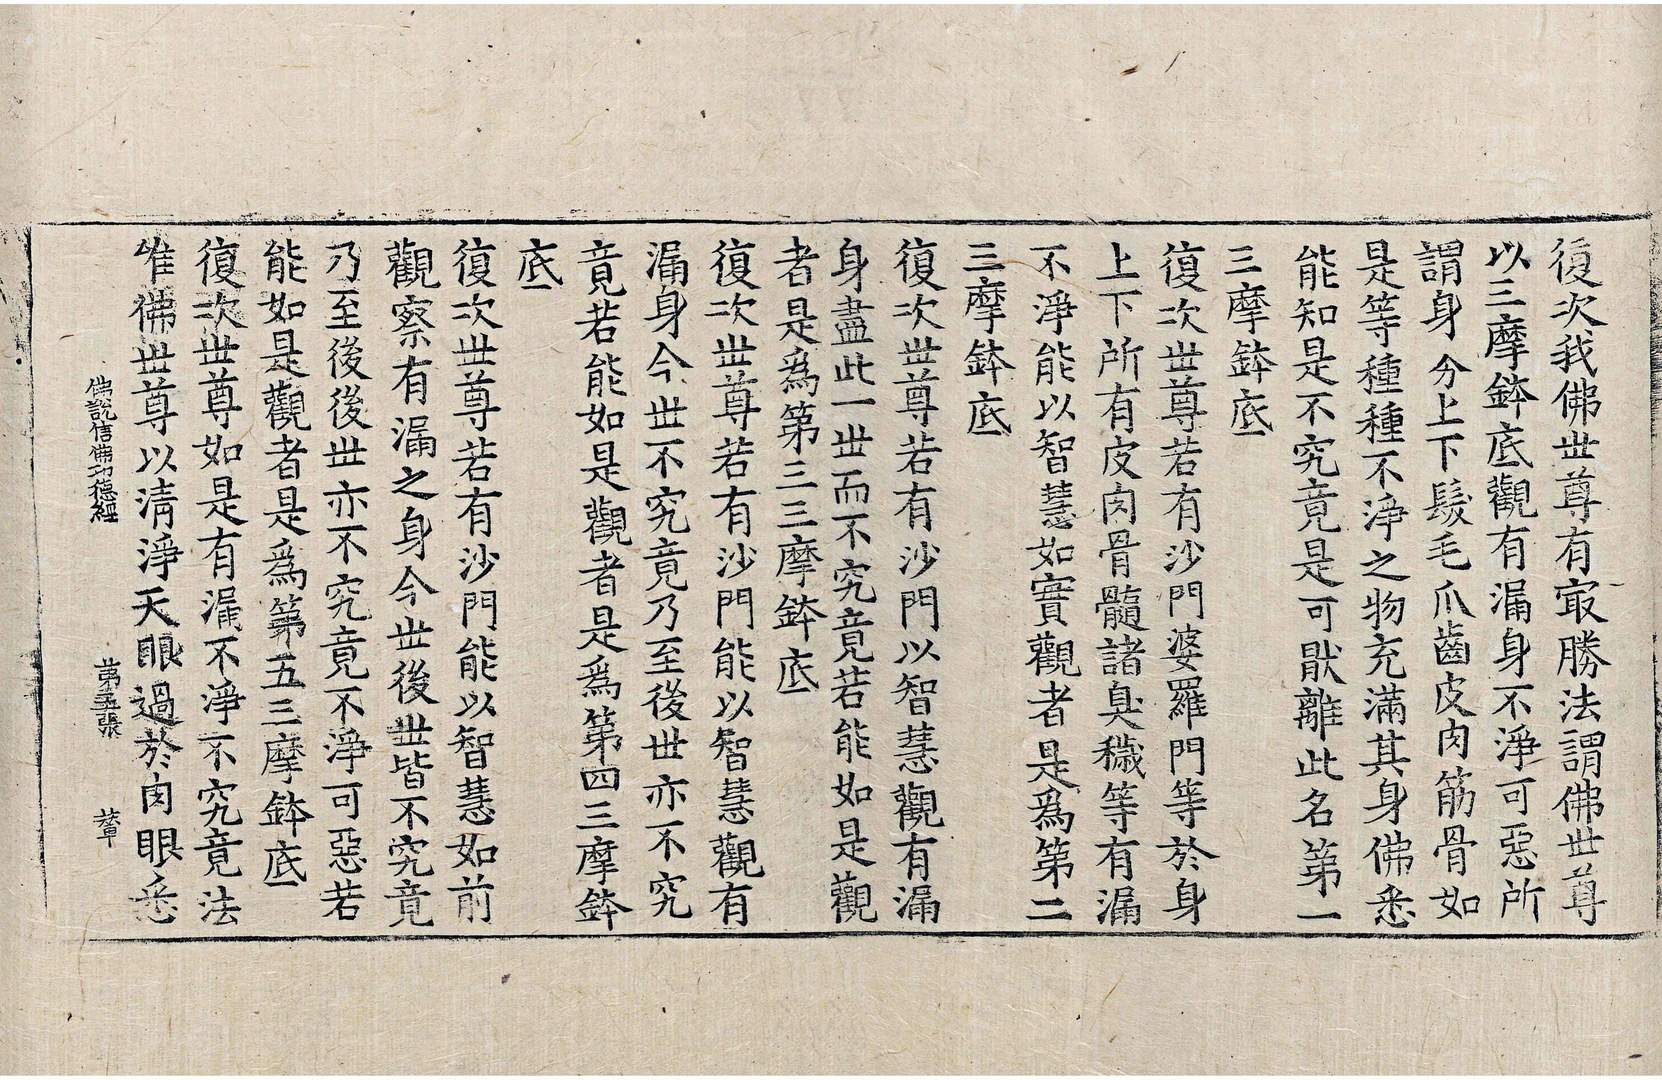 復次我佛世尊有㝡勝法謂佛世尊
以三摩鉢底觀有漏身不淨可惡所
謂身分上下髮毛爪齒皮肉筋骨如
是等種種不淨之物充滿其身佛悉
能知是不究竟是可猒離此名第一
三摩鉢底
復次世尊若有沙門婆羅門等於身
上下所有皮肉骨髓諸臭穢等有漏
不淨能以智慧如實觀者是爲第二
三摩鉢底
復次世尊若有沙門以智慧觀有漏
身盡此一世而不究竟若能如是觀
者是爲第三三摩鉢底
復次世尊若有沙門能以智慧觀有
漏身今世不究竟乃至後世亦不究
竟若能如是觀者是爲第四三摩鉢
底
復次世尊若有沙門能以智慧如前
觀察有漏之身今世後世皆不究竟
乃至後後世亦不究竟不淨可惡若
能如是觀者是爲第五三摩鉢底
復次世尊如是有漏不淨不究竟法
唯佛世尊以清淨天眼過於肉眼悉
佛說信佛功德經 第五張